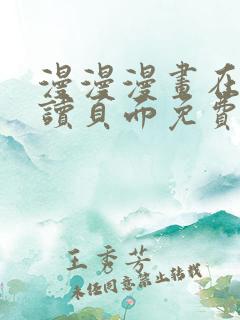 漫漫漫畫在
讀頁面免費
王秀芳
未经同意禁止转载